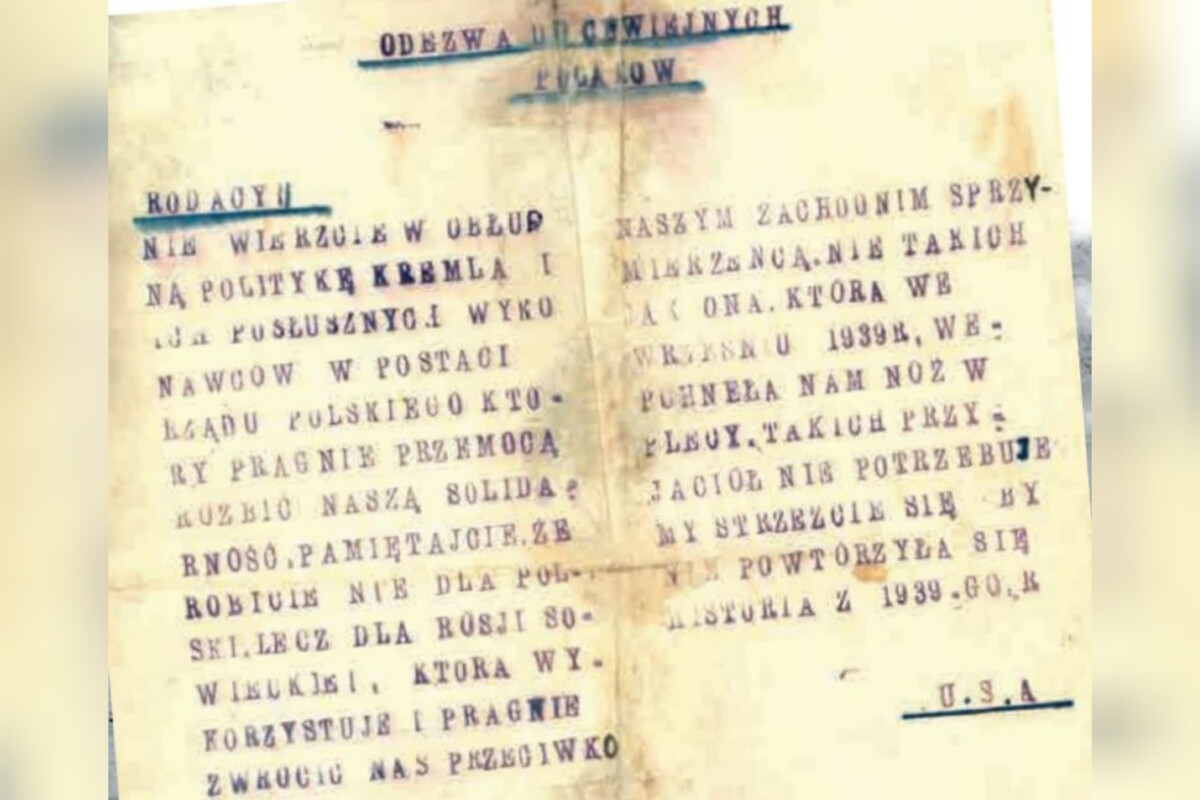 ODEZWA
RODACY!!
NIE WIERZCIE W OBŁUD
NĄ POLITYKĘ KREMLA I
POSŁUSZNYCH WYKO
NAWCOW W POSTACI
RZĄDU POLSKIEGO KTO-
RY PRAGNIE PRZEMOCĄ
ROZBIC NASZĄ SOLIDA-
RNOŚĆ.PAMIĘTAJCIE.ŻE
ROBICIE NIE DLA POL-
SKI.LECZ DLA ROSJI SO-
WIECKIEJ, KTORA WY-
KORZYSTUJE I PRAGNIE
ZWROCIC NAS PRZECIWKO
NASZYM ZACHODNIM SPRZY-
MIERZEŃCĄ.NIE TAKICH
JAK ONA.KTÓRA WE
WRZESNIU 1939R, WE-
PCHNEŁA NAM NOŻ W
PLECY.TAKICH PRZY-
JACIOŁ NIE POTRZEBUJE
MY STRZEZCIE SIĘ BY
NIE POWTÓRZYŁA SIĘ
HISTORIA Z 1939.GO.R
U.S.A